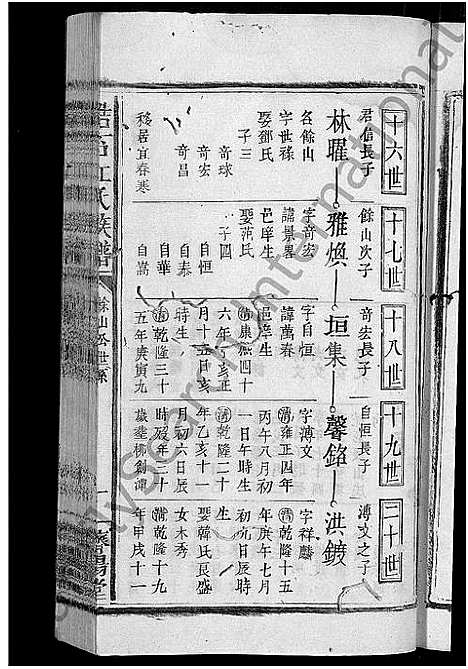 十六世
君信長子
林曜
名餘山
字世祿
娶鄧氏
子三
奇球
奇宏
奇昌
移居宜春寒
十七世
餘山次子
雅煥
字奇宏
諱景畧
邑庠生
娶范氏
子四
自恒
自泰
自華
自嵩
十八世
奇宏長子
垣集
字自恒
諱萬春
邑庠生
清康熙四十
六年丁亥正
月十五日亥
時生
清乾隆三十
五年庚寅九
十九世
自恒長子
馨銘
字溥文
清雍正四年
丙午八月初
一日午時生
清乾隆二十
年乙亥十一
月初六日辰
時歿年三十
歲葬楊
二十世
溥文之子
洪鍍
字祥麟
清乾隆十五
年庚午七月
初九日辰時
生
娶韓氏良盛
女木秀
清乾隆十九
年甲戌十一
江氏族譜
餘山公世系